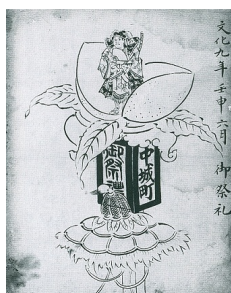 文化九年壬申六月 御祭礼
中城町
御祭礼